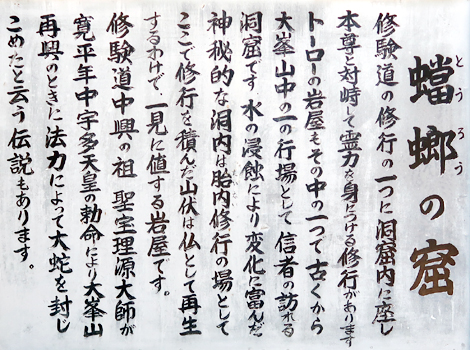 蟷螂の窟
とうろう
修験道の修行の一つに洞窟内に座し
本尊と対峙して霊力を身につける修行があります
トーローの岩屋もその中の一つで古くから
大峯山中の一の行場として信者の訪れる
洞窟です。水の浸蝕により変化に富んだ
神秘的な洞内は胎内修行の場として
ここで修行を積んだ山伏は仏として再生
するわけで、一見に値する岩屋です。
修験道中興の祖 聖宝理源大師が
寛平年中宇多天皇の勅命により大峯山
再興のときに法力によって大蛇を封じ
こめたと云う伝説もあります。